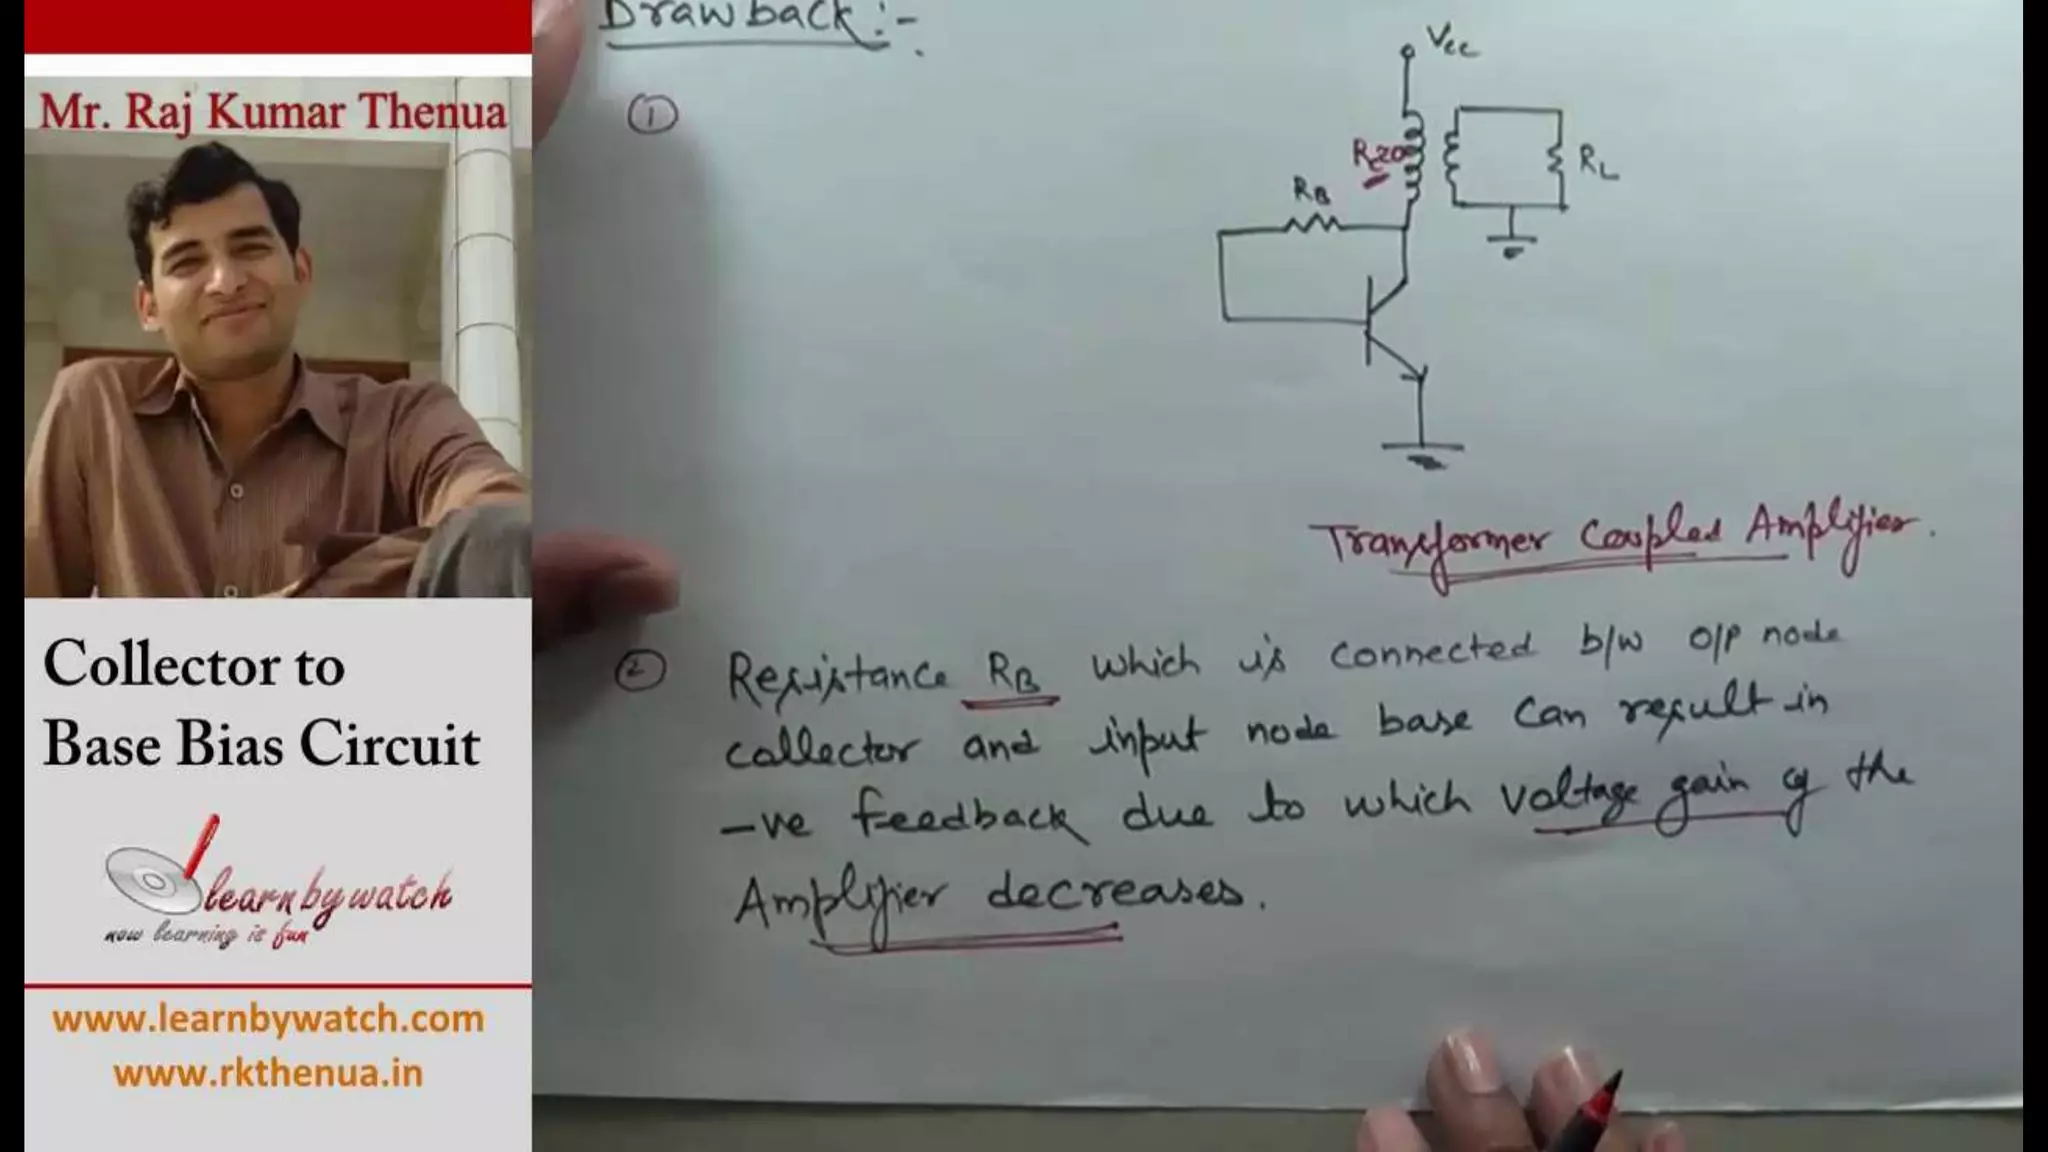 Mr. Raj Kumar Thenua
Collector to
Base Bias Circuit
learnbywatch
now learning is fun
www.learnbywatch.com
www.rkthenua.in
Drawback:-
1
Vcc
RC≈0
RB
RL
Transformer Coupled Amplifier.
2 Resistance RB which is connected b/w o/p node
collector and input node base can result in
-ve feedback due to which voltage gain of the
Amplifier decreases.